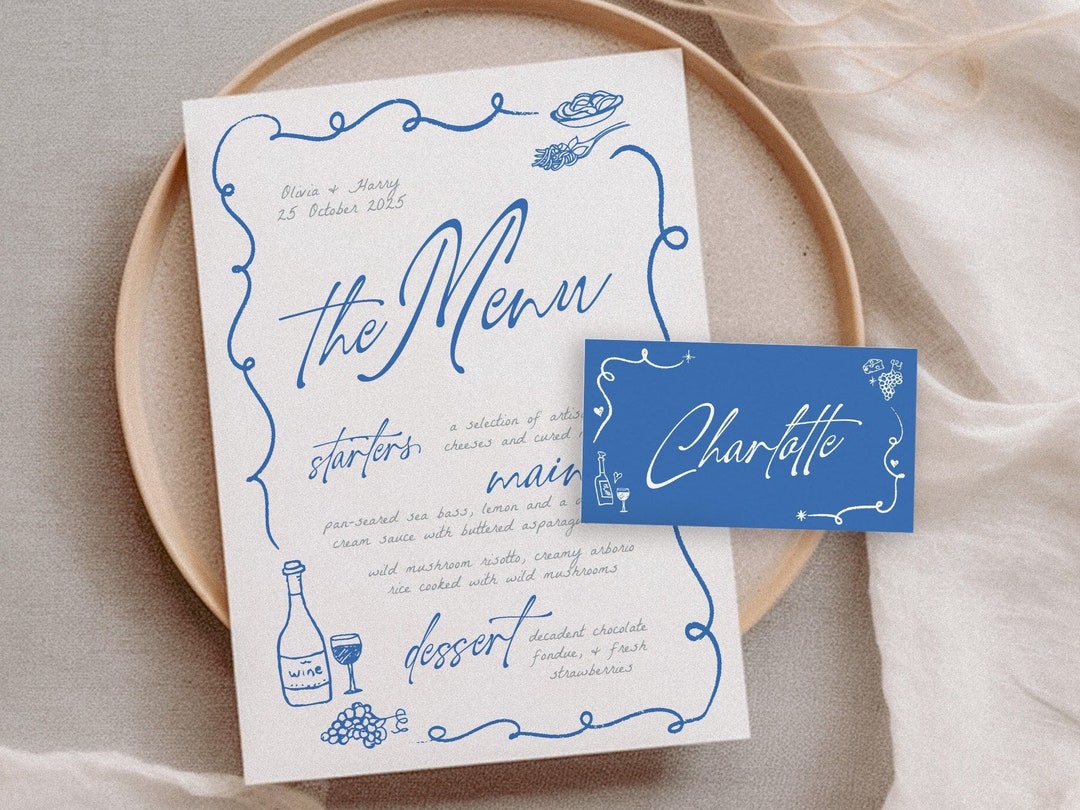 Olivia & Harry
25 October 2025
the Menu
starters
a selection of
cheeses and cured
main
pan-seared sea bass, lemon and a
cream sauce with buttered
wild mushroom risotto, creamy arborio
rice cooked with wild mushrooms
dessert
decadent chocolate
fondue, & fresh
strawberries
wine
Charlotte